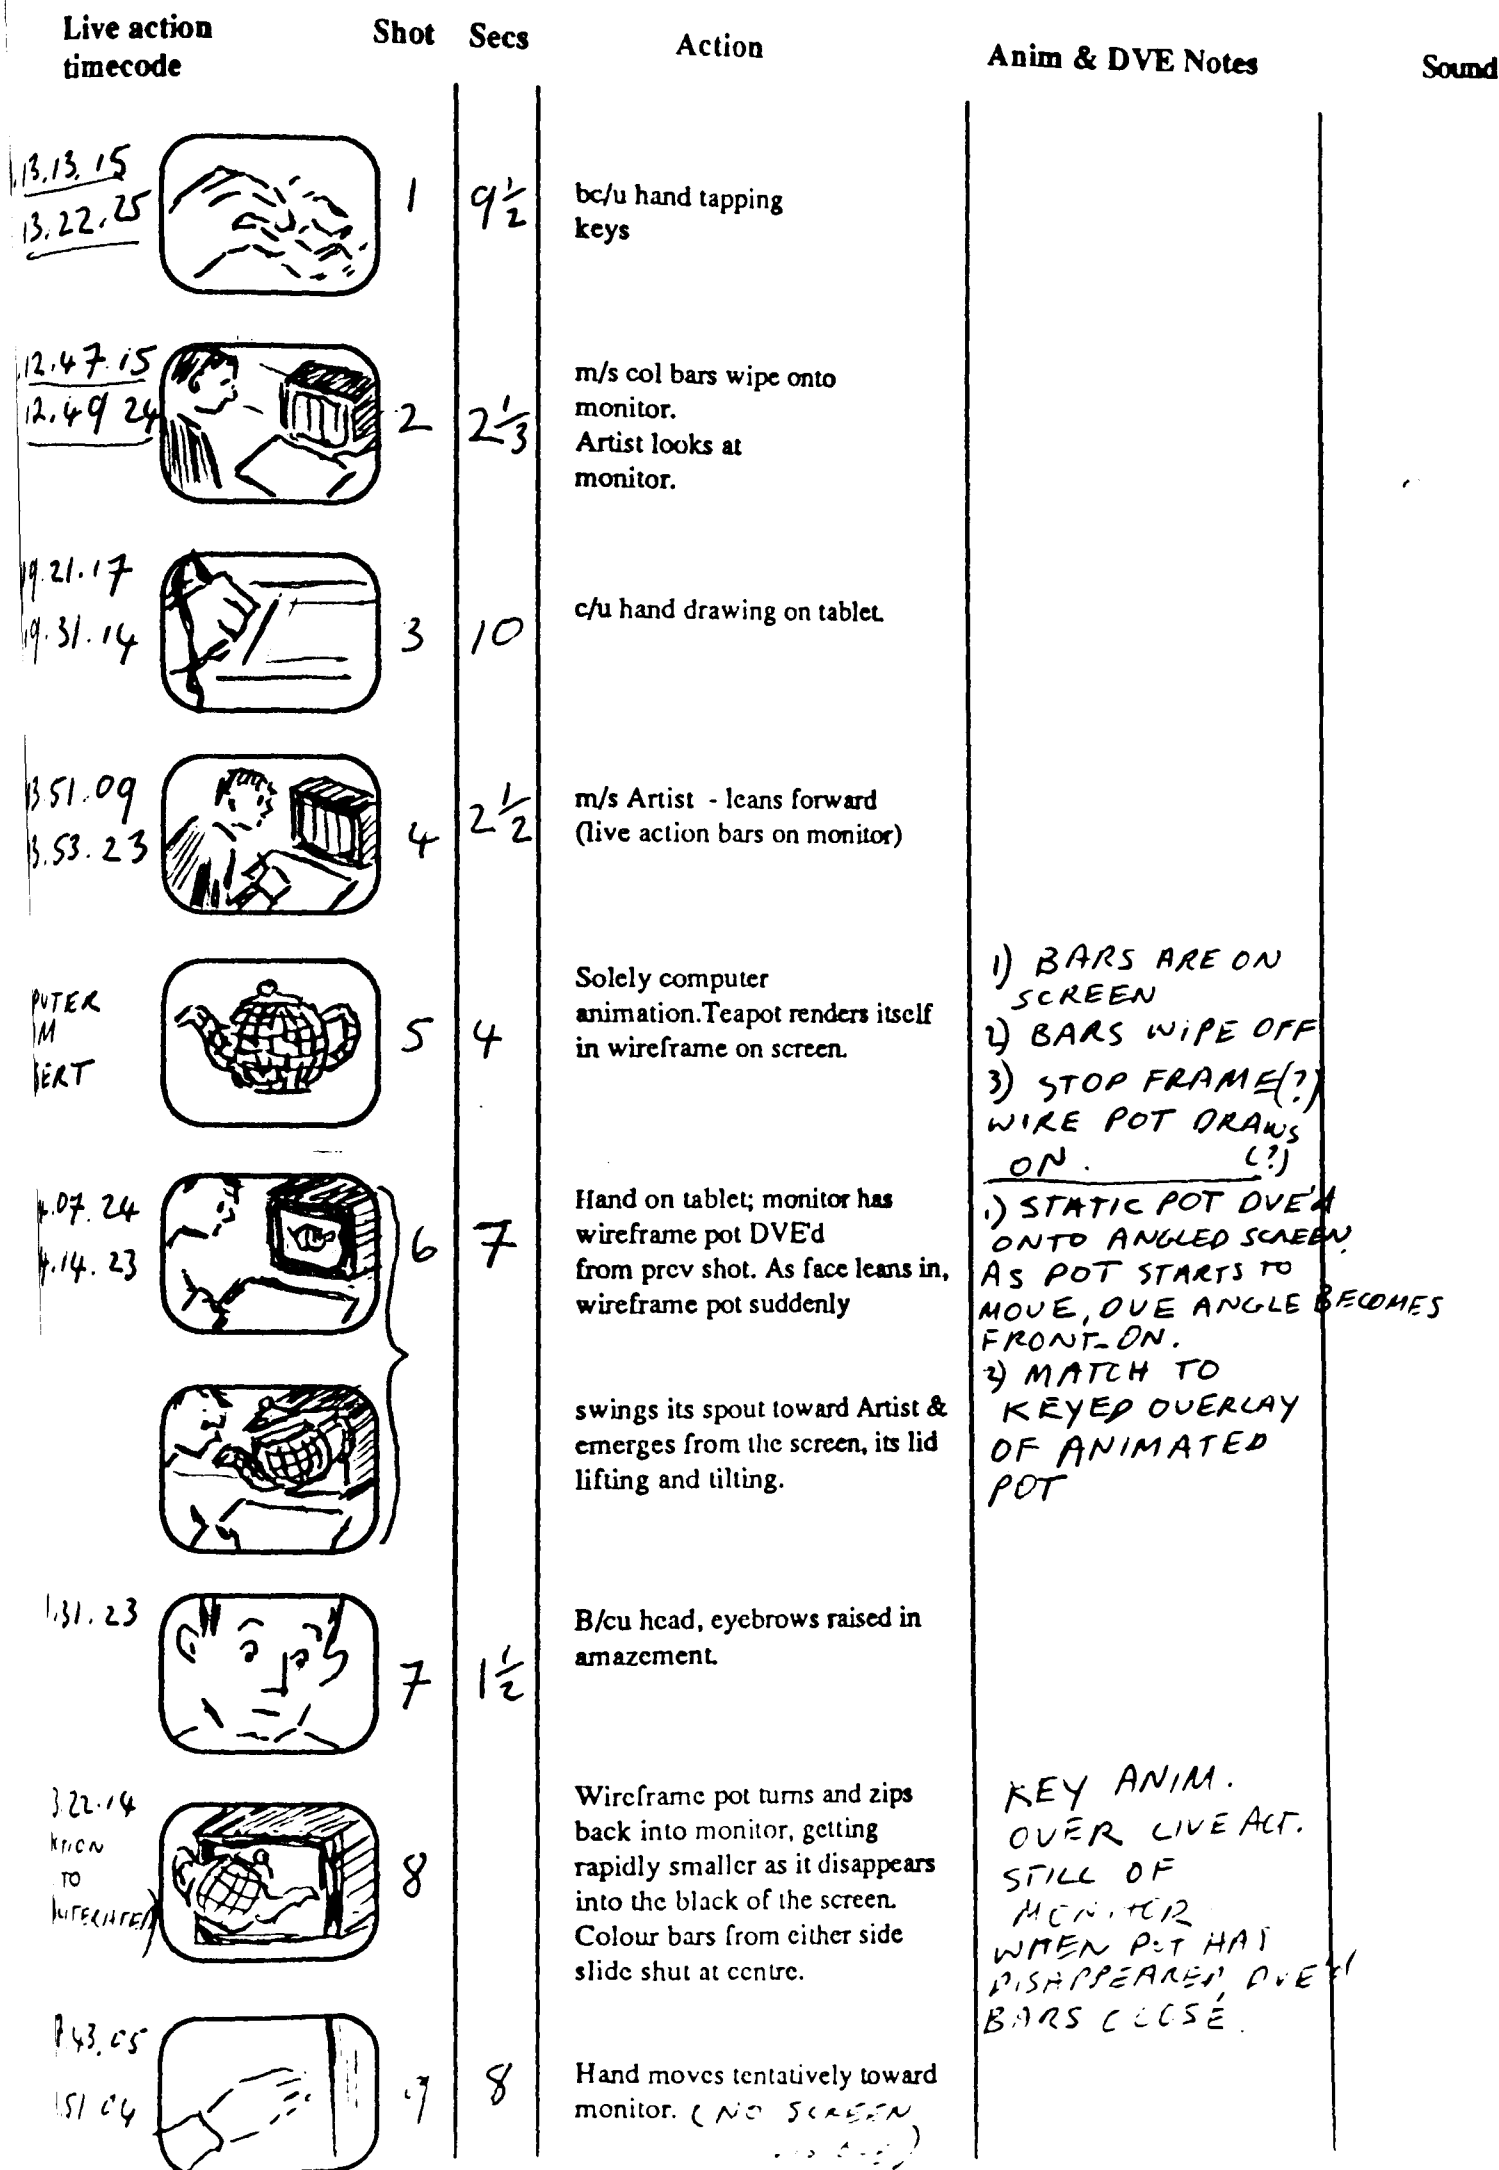 Live action
timecode
Shot
Secs
Action
Anim & DVE Notes
Sound
13.13.15
13.22.25
1
9½
bc/u hand tapping
keys
12.47.15
12.49 24
2
2⅓
m/s col bars wipe onto
monitor.
Artist looks at
monitor.
19.21.17
19.31.14
3
10
c/u hand drawing on tablet.
13.51.09
13.53.23
4
2½
m/s Artist - leans forward
(live action bars on monitor)
PUTER
M
SERT
5
4
Solely computer
animation.Teapot renders itself
in wireframe on screen.
1) BARS ARE ON
SCREEN
2) BARS WIPE OFF
3) STOP FRAME(?)
WIRE POT DRAWS
ON. (?)
4.07.24
4.14.23
6
7
Hand on tablet; monitor has
wireframe pot DVE'd
from prev shot. As face leans in,
wireframe pot suddenly
swings its spout toward Artist &
emerges from the screen, its lid
lifting and tilting.
1) STATIC POT DVE'd
ONTO ANGLED SCREEN.
AS POT STARTS TO
MOVE, DVE ANGLE BECOMES
FRONT-ON.
2) MATCH TO
KEYED OVERLAY
OF ANIMATED
POT
1.31.23
7
1½
B/cu head, eyebrows raised in
amazement.
3.22.14
TO
8
Wireframe pot turns and zips
back into monitor, getting
rapidly smaller as it disappears
into the black of the screen.
Colour bars from either side
slide shut at centre.
KEY ANIM.
OVER LIVE ACT.
STILL OF
MONITOR
WHEN POT HAS
DISAPPEARED, DVE'd
BARS CLOSE.
43.05
51.04
9
8
Hand moves tentatively toward
monitor. (NO SCREEN